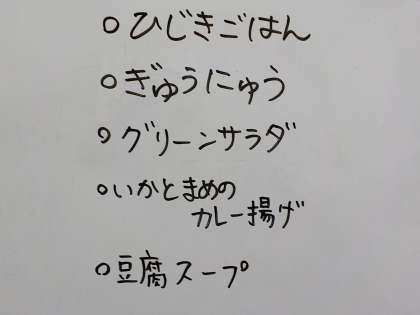 ○ひじきごはん
○ぎゅうにゅう
○グリーンサラダ
○いかとまめの
カレー揚げ
○豆腐スープ